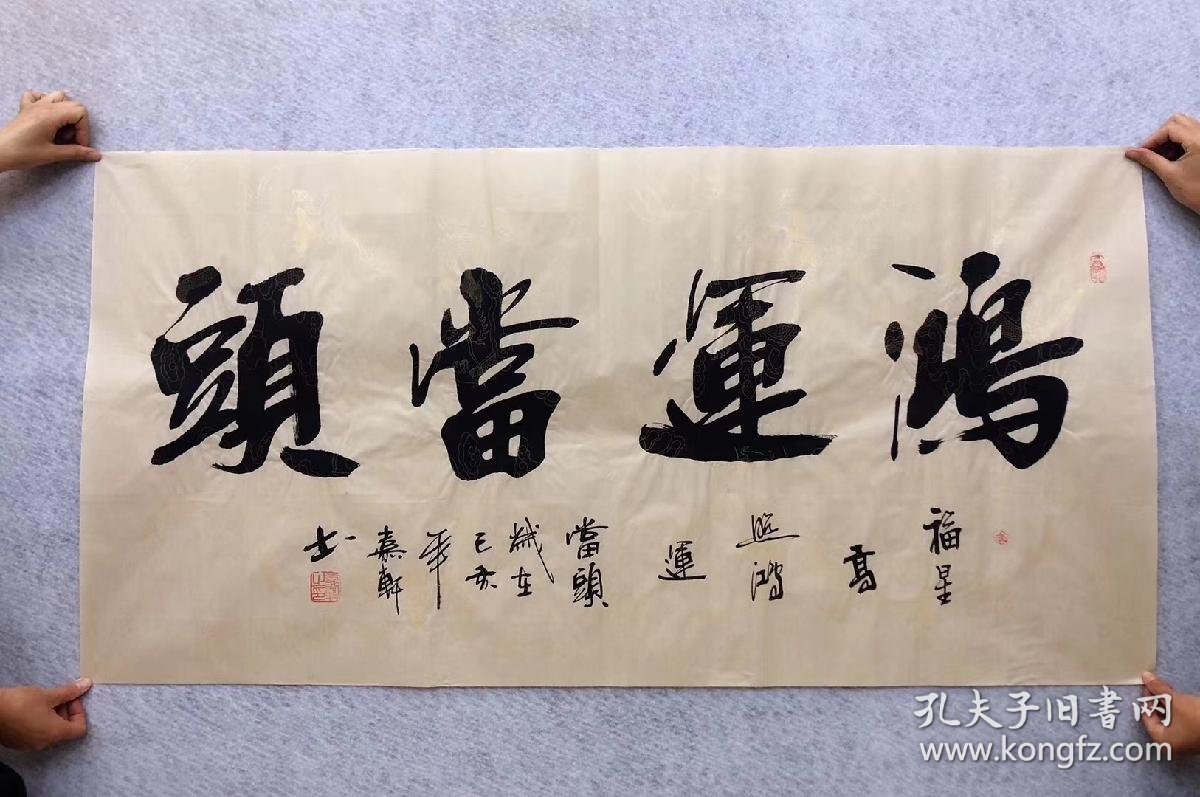 鴻運當頭
福星
高
照鴻
運
當頭
歲在
己亥
年
嘉軒
书
孔夫子旧書网
www.kongfz.com